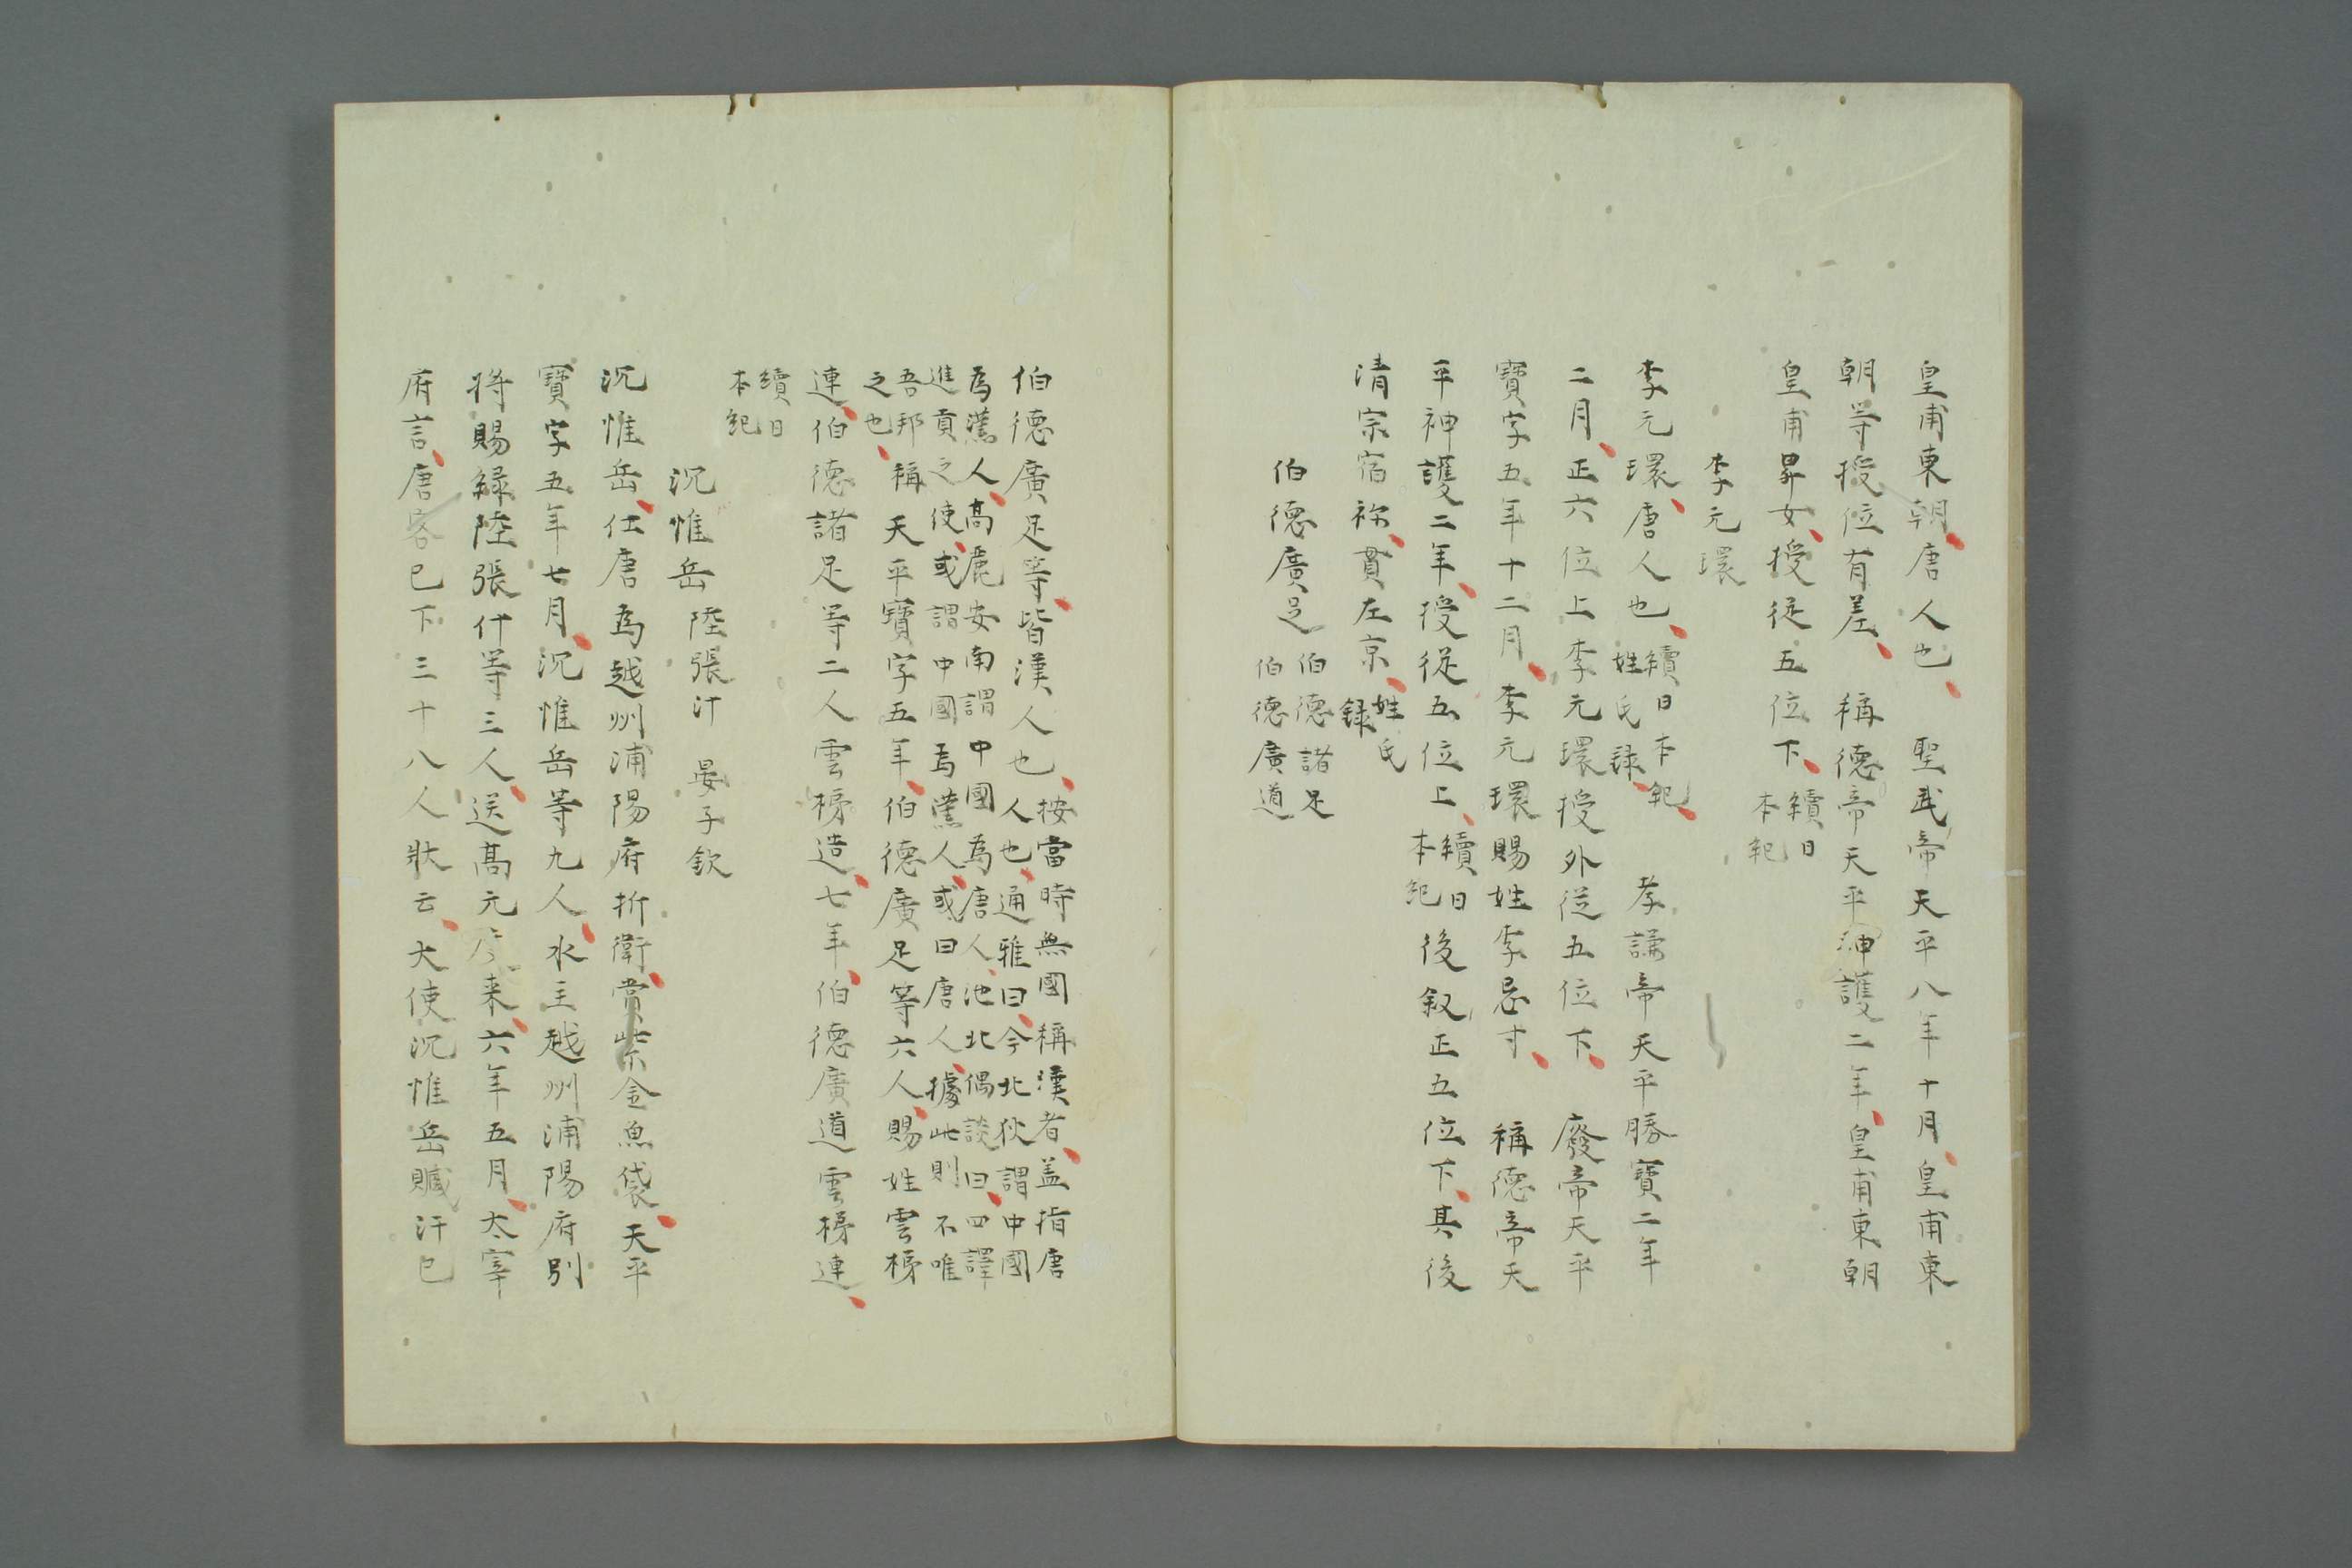 皇甫東朝唐人也　聖武帝天平八年十月皇甫東
朝等授位有差　稱德帝天平神護二年皇甫東朝
皇甫昇女授従五位下續日本紀
李元環
李元環唐人也續日本紀姓氏録　孝謙帝天平勝寶二年
二月正六位上李元環授外従五位下　廢帝天平
寶字五年十二月李元環賜姓李忌寸　稱德帝天
平神護二年授従五位上續日本紀後叙正五位下其後
清宗宿祢貫左京姓氏録
伯德廣足　伯德諸足
伯德廣道
伯德廣足等皆漢人也按當時無國稱漢者盖指唐
人也通雅曰今北狄謂中國
為漢人高麗安南謂中國為唐人池北偶談曰四譯
進貢之使或謂中國焉漢人或曰唐人據此則不唯
吾邦
之也　稱天平寶字五年伯德廣足等六人賜姓雲梯
連伯德諸足等二人雲梯造七年伯德廣道雲梯連
續日
本紀
沉惟岳　陸張什　晏子欽
沉惟岳仕唐為越州浦陽府折衝賞紫金魚袋天平
寶字五年七月沉惟岳等九人水主越州浦陽府別
将賜緑陸張什等三人送髙元度来六年五月太宰
府言唐客已下三十八人狀云大使沉惟岳贓汙已